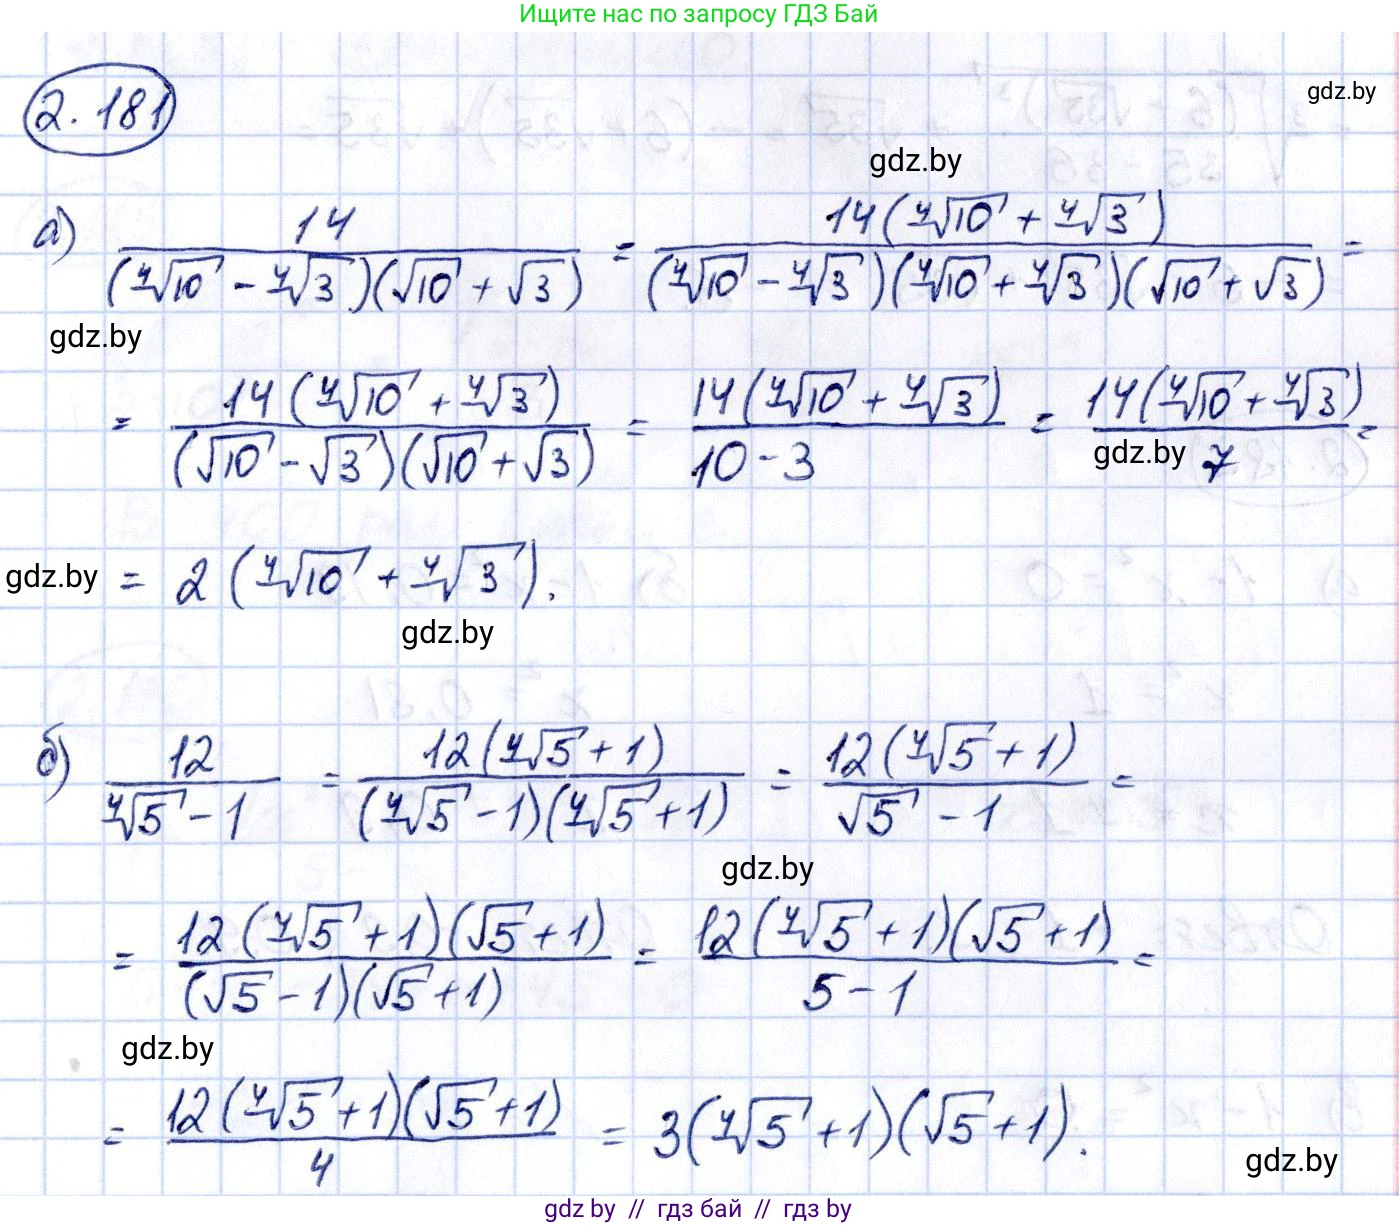 Ищите нас по запросу ГДЗ Бай
gdz.by
2.181
gdz.by
а) 14 / ((⁴√10 - ⁴√3)(√10 + √3)) = 14(⁴√10 + ⁴√3) / ((⁴√10 - ⁴√3)(⁴√10 + ⁴√3)(√10 + √3)) =
gdz.by
= 14(⁴√10 + ⁴√3) / ((√10 - √3)(√10 + √3)) = 14(⁴√10 + ⁴√3) / (10 - 3) = 14(⁴√10 + ⁴√3) / 7 =
gdz.by
gdz.by
= 2(⁴√10 + ⁴√3).
gdz.by
б) 12 / (⁴√5 - 1) = 12(⁴√5 + 1) / ((⁴√5 - 1)(⁴√5 + 1)) = 12(⁴√5 + 1) / (√5 - 1) =
gdz.by
= 12(⁴√5 + 1)(√5 + 1) / ((√5 - 1)(√5 + 1)) = 12(⁴√5 + 1)(√5 + 1) / (5 - 1) =
gdz.by
= 12(⁴√5 + 1)(√5 + 1) / 4 = 3(⁴√5 + 1)(√5 + 1).
gdz.by
gdz by // гдз бай // гдз by